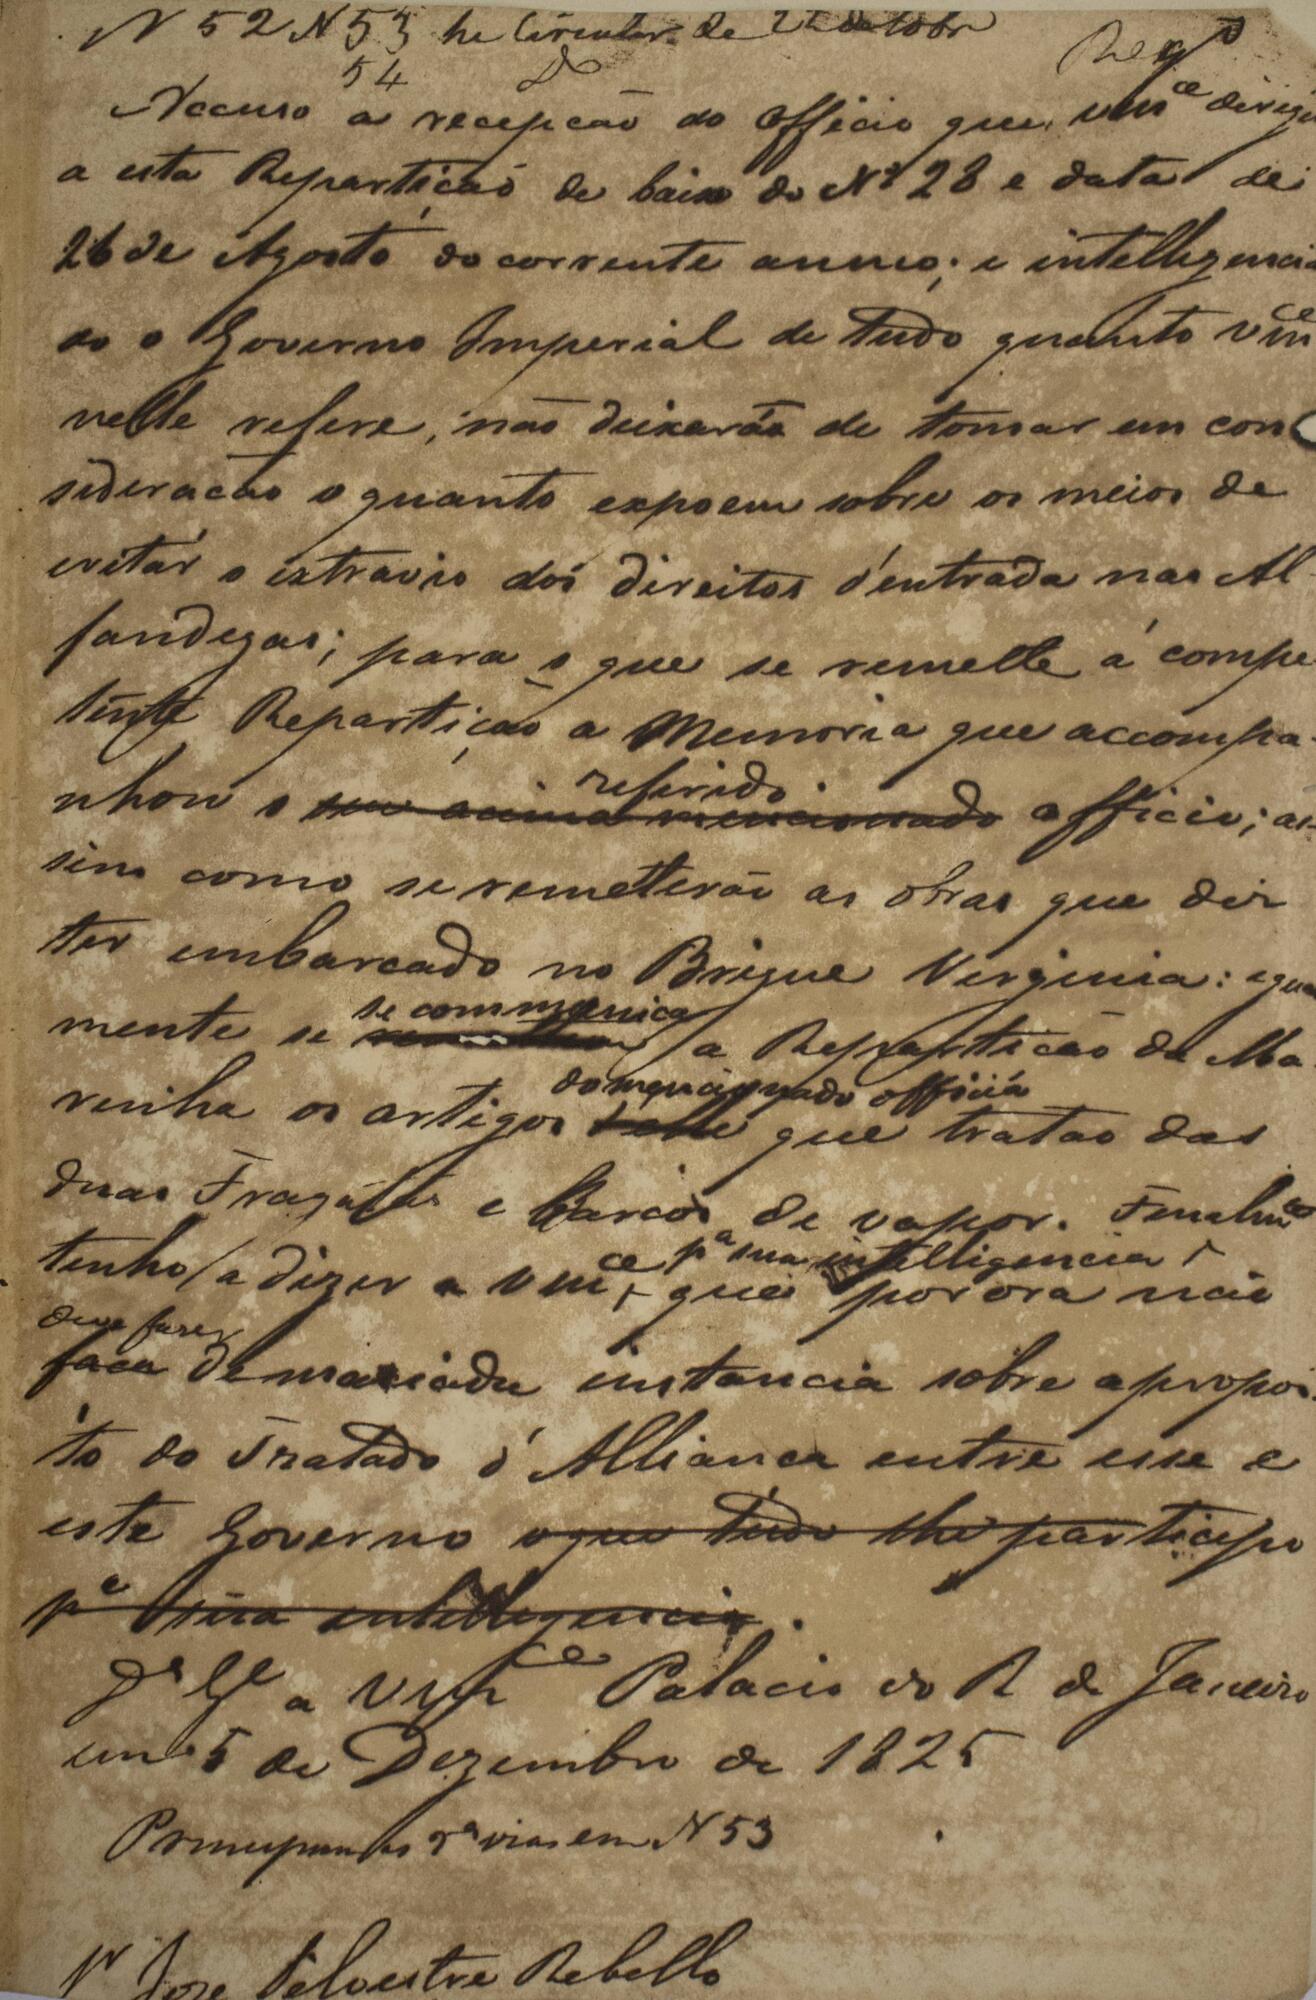 N 52 N 53 he Circular de 22 de Outubr
54
Reg.do
Accuso a recepção do officio que vmce dirigiu
a esta Repartição de baixo do Nº 28 e data de
26 de Agosto do corrente anno; e intelligencia
do o Governo Imperial de tudo quanto Vmce
nelle refere, não deixará de tomar em con
sideração o quanto expoem sobre os meios de
evitar o extravio dos direitos d'entrada nas Al
fandegas; para o que se remette á compe
tente Repartição a Memoria que accompa-
nhou o seu acima mencionado referido officio; as
sim como se remeterão as obras que diz
ter embarcado no Brigue Verginia: igual
mente se se communica a Repartição da Ma-
rinha os artigos delle do mencionado officio que tratão das
duas Fragatas e Barcos de vapor. Finalmte
tenho a dizer a Vmce, pa sua intelligencia, que por ora não
faça deve fazer demasiada instancia sobre a proposi
to do Tratado d'Alliança entre esse e
este Governo o que tudo lhe participo
pa sua intelligencia.
Ds Ge a Vmce Palacio do R de Janeiro
em 5 de Dezembro de 1825
Principiam as 2as vias em N 53
Sr Jose Silvestre Rebello